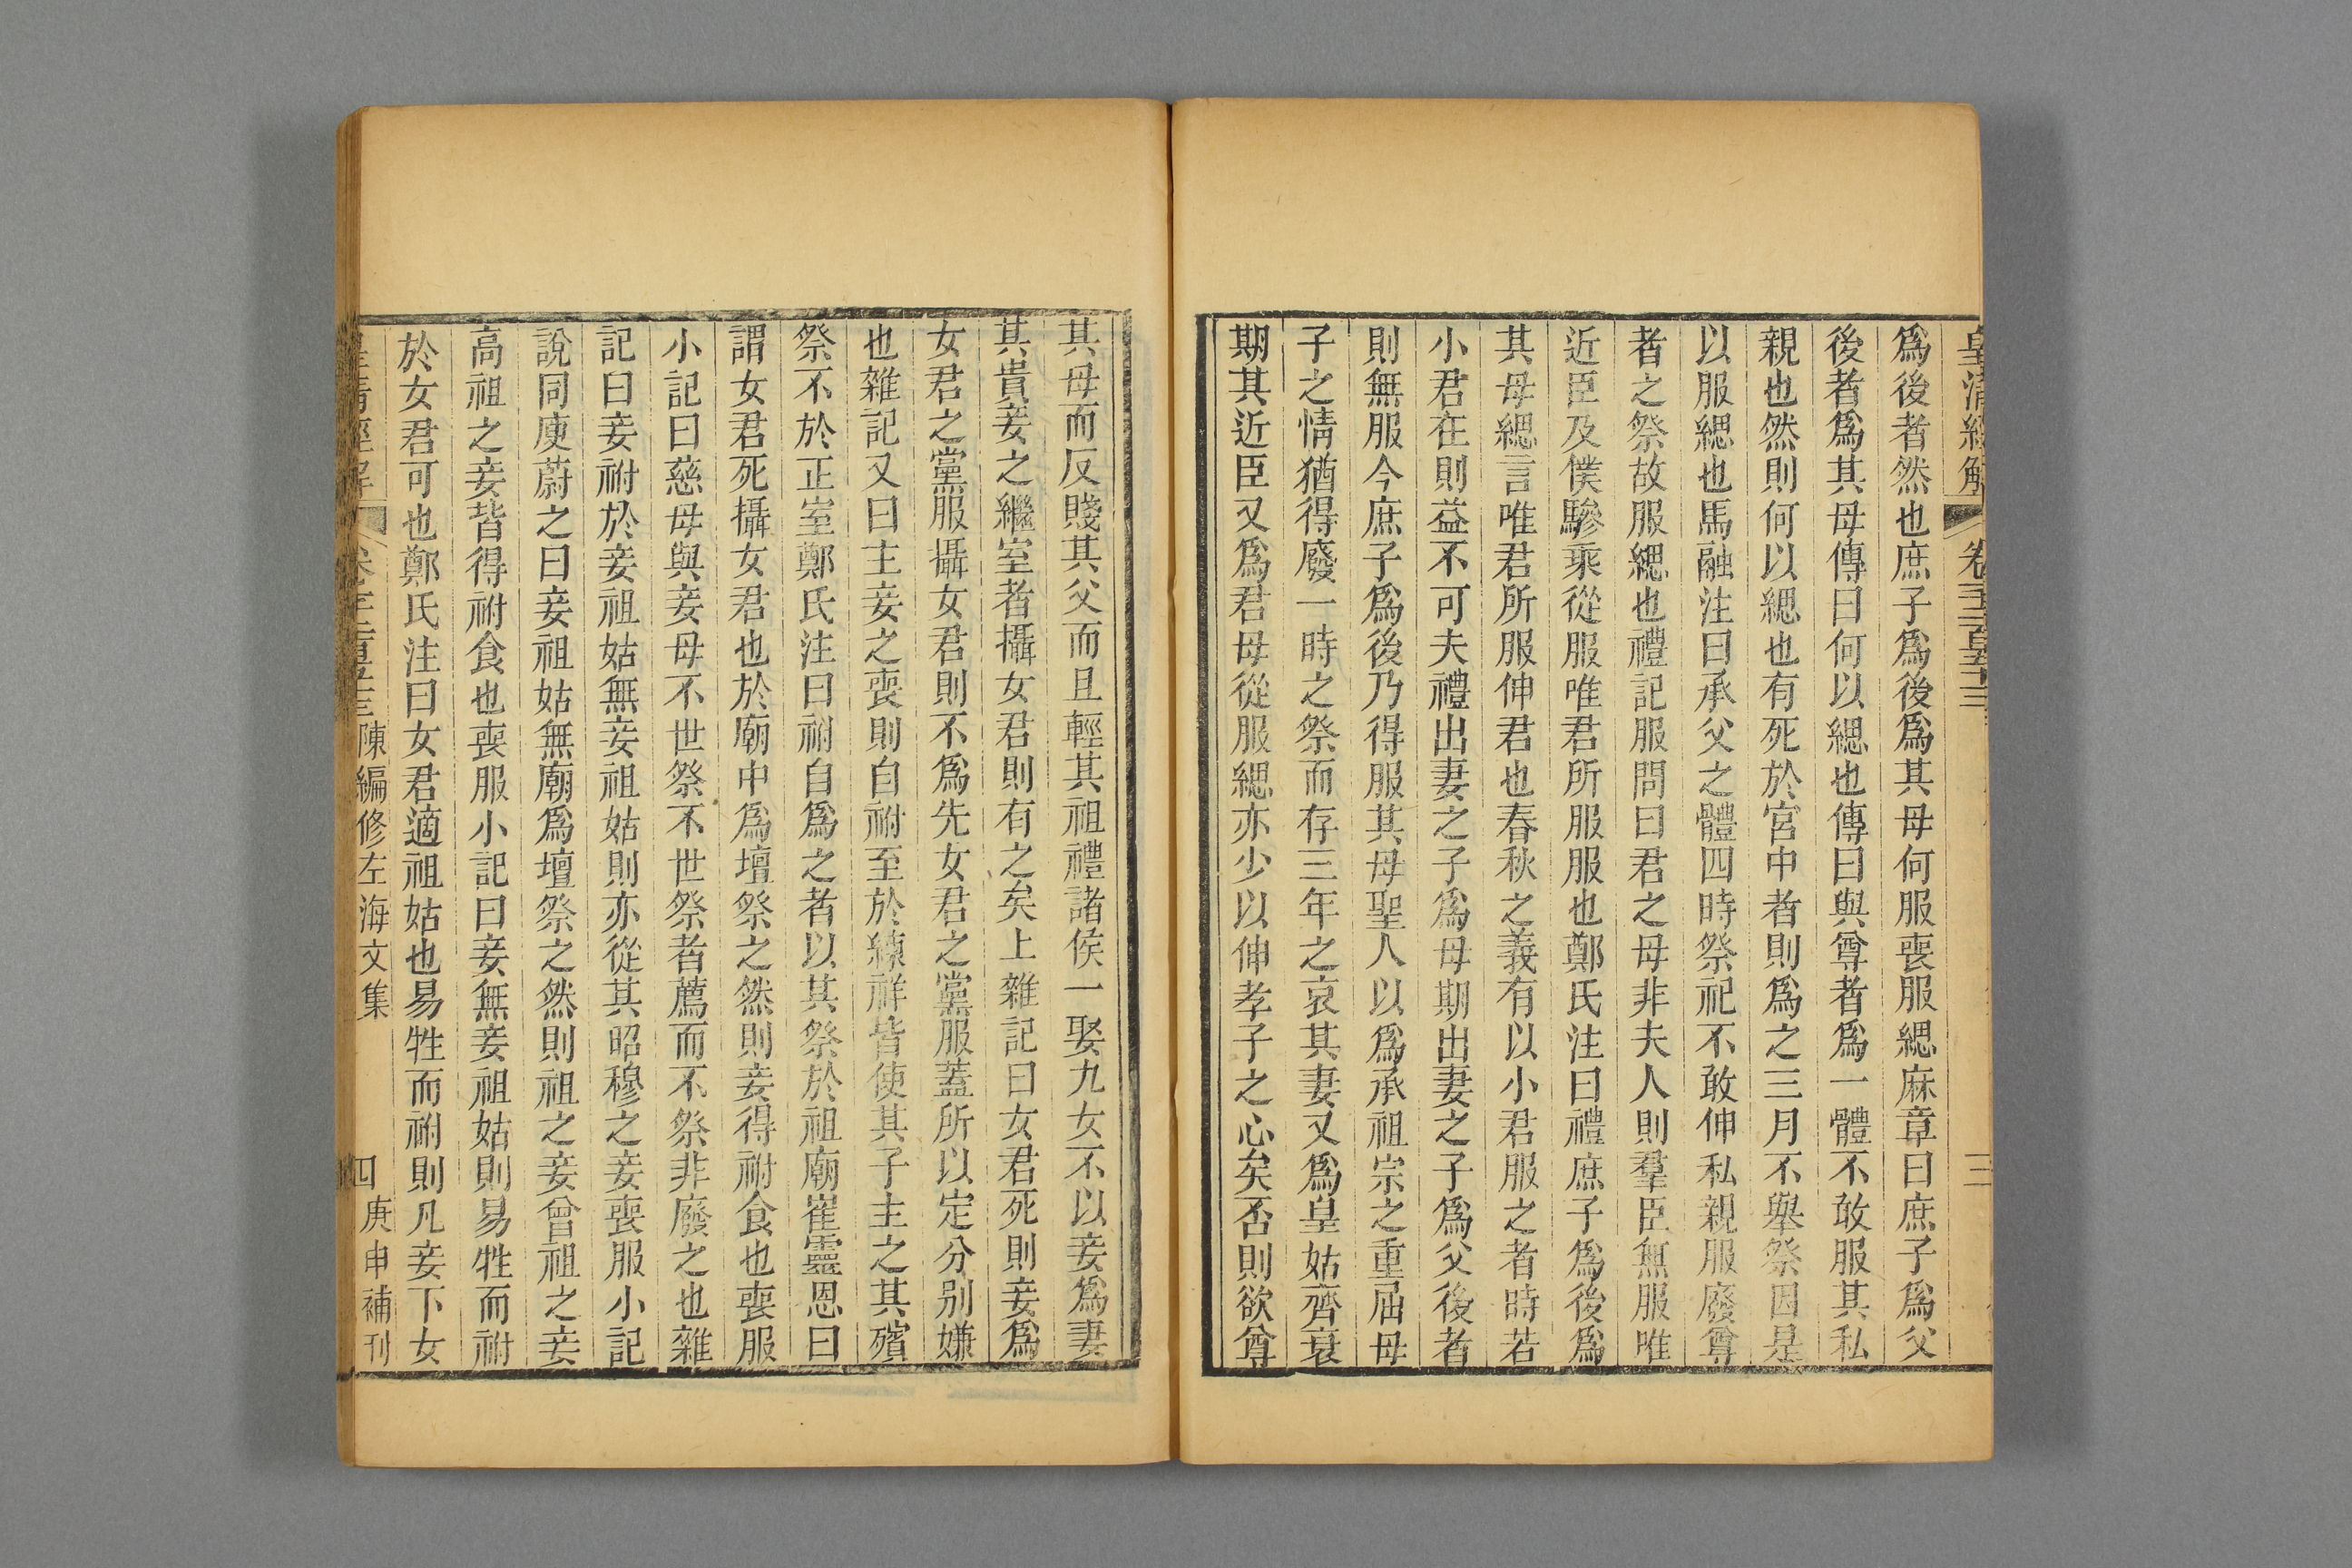 皇清經解 卷千二百五十三 三
爲後者然也庶子爲後爲其母何服喪服緦麻章曰庶子爲父
後者爲其母傳曰何以緦也傳曰與尊者爲一體不敢服其私
親也然則何以緦也有死於宮中者則爲之三月不舉祭因是
以服緦也馬融注曰承父之體四時祭祀不敢伸私親服廢尊
者之祭故服緦也禮記服問曰君之母非夫人則羣臣無服唯
近臣及僕驂乘從服唯君所服服也鄭氏注曰禮庶子爲後爲
其母緦言唯君所服伸君也春秋之義有以小君服之者時若
小君在則益不可夫禮出妻之子爲母期出妻之子爲父後者
則無服今庶子爲後乃得服其母聖人以爲承祖宗之重屈母
子之情猶得廢一時之祭而存三年之哀其妻又爲皇姑齊衰
期其近臣又爲君母從服緦亦少以伸孝子之心矣否則欲尊
其母而反賤其父而且輕其祖禮諸侯一娶九女不以妾爲妻
其貴妾之繼室者攝女君則有之矣上雜記曰女君死則妾爲
女君之黨服攝女君則不爲先女君之黨服蓋所以定分別嫌
也雜記又曰主妾之喪則自祔至於練祥皆使其子主之其殯
祭不於正室鄭氏注曰祔自爲之者以其祭於祖廟崔靈恩曰
謂女君死攝女君也於廟中爲壇祭之然則妾得祔食也喪服
小記曰慈母與妾母不世祭不世祭者薦而不祭非廢之也雜
記曰妾祔於妾祖姑無妾祖姑則亦從其昭穆之妾喪服小記
說同庾蔚之曰妾祖姑無廟爲壇祭之然則祖之妾曾祖之妾
高祖之妾皆得祔食也喪服小記曰妾無妾祖姑則易牲而祔
於女君可也鄭氏注曰女君適祖姑也易牲而祔則凡妾下女
皇清經解 卷千二百五十三 陳編修左海文集 四 庚申補刊